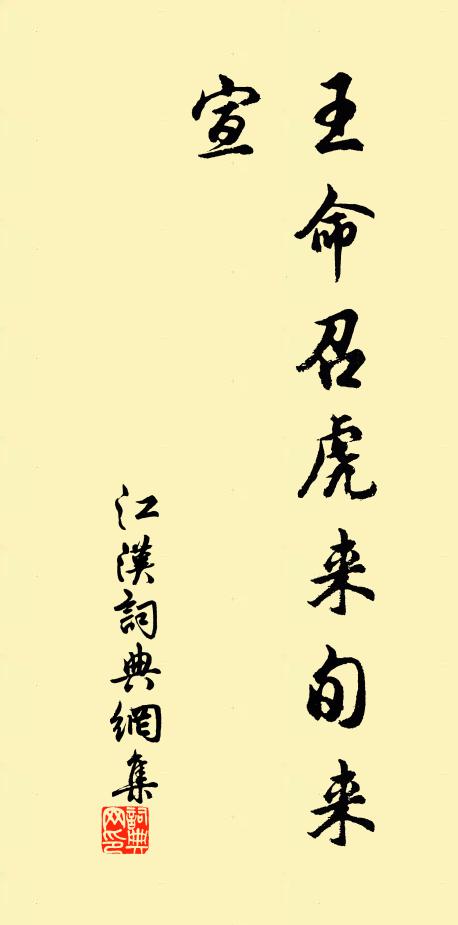 王命召虎来旬来
宣
江漢詞典網集
詞典
网印